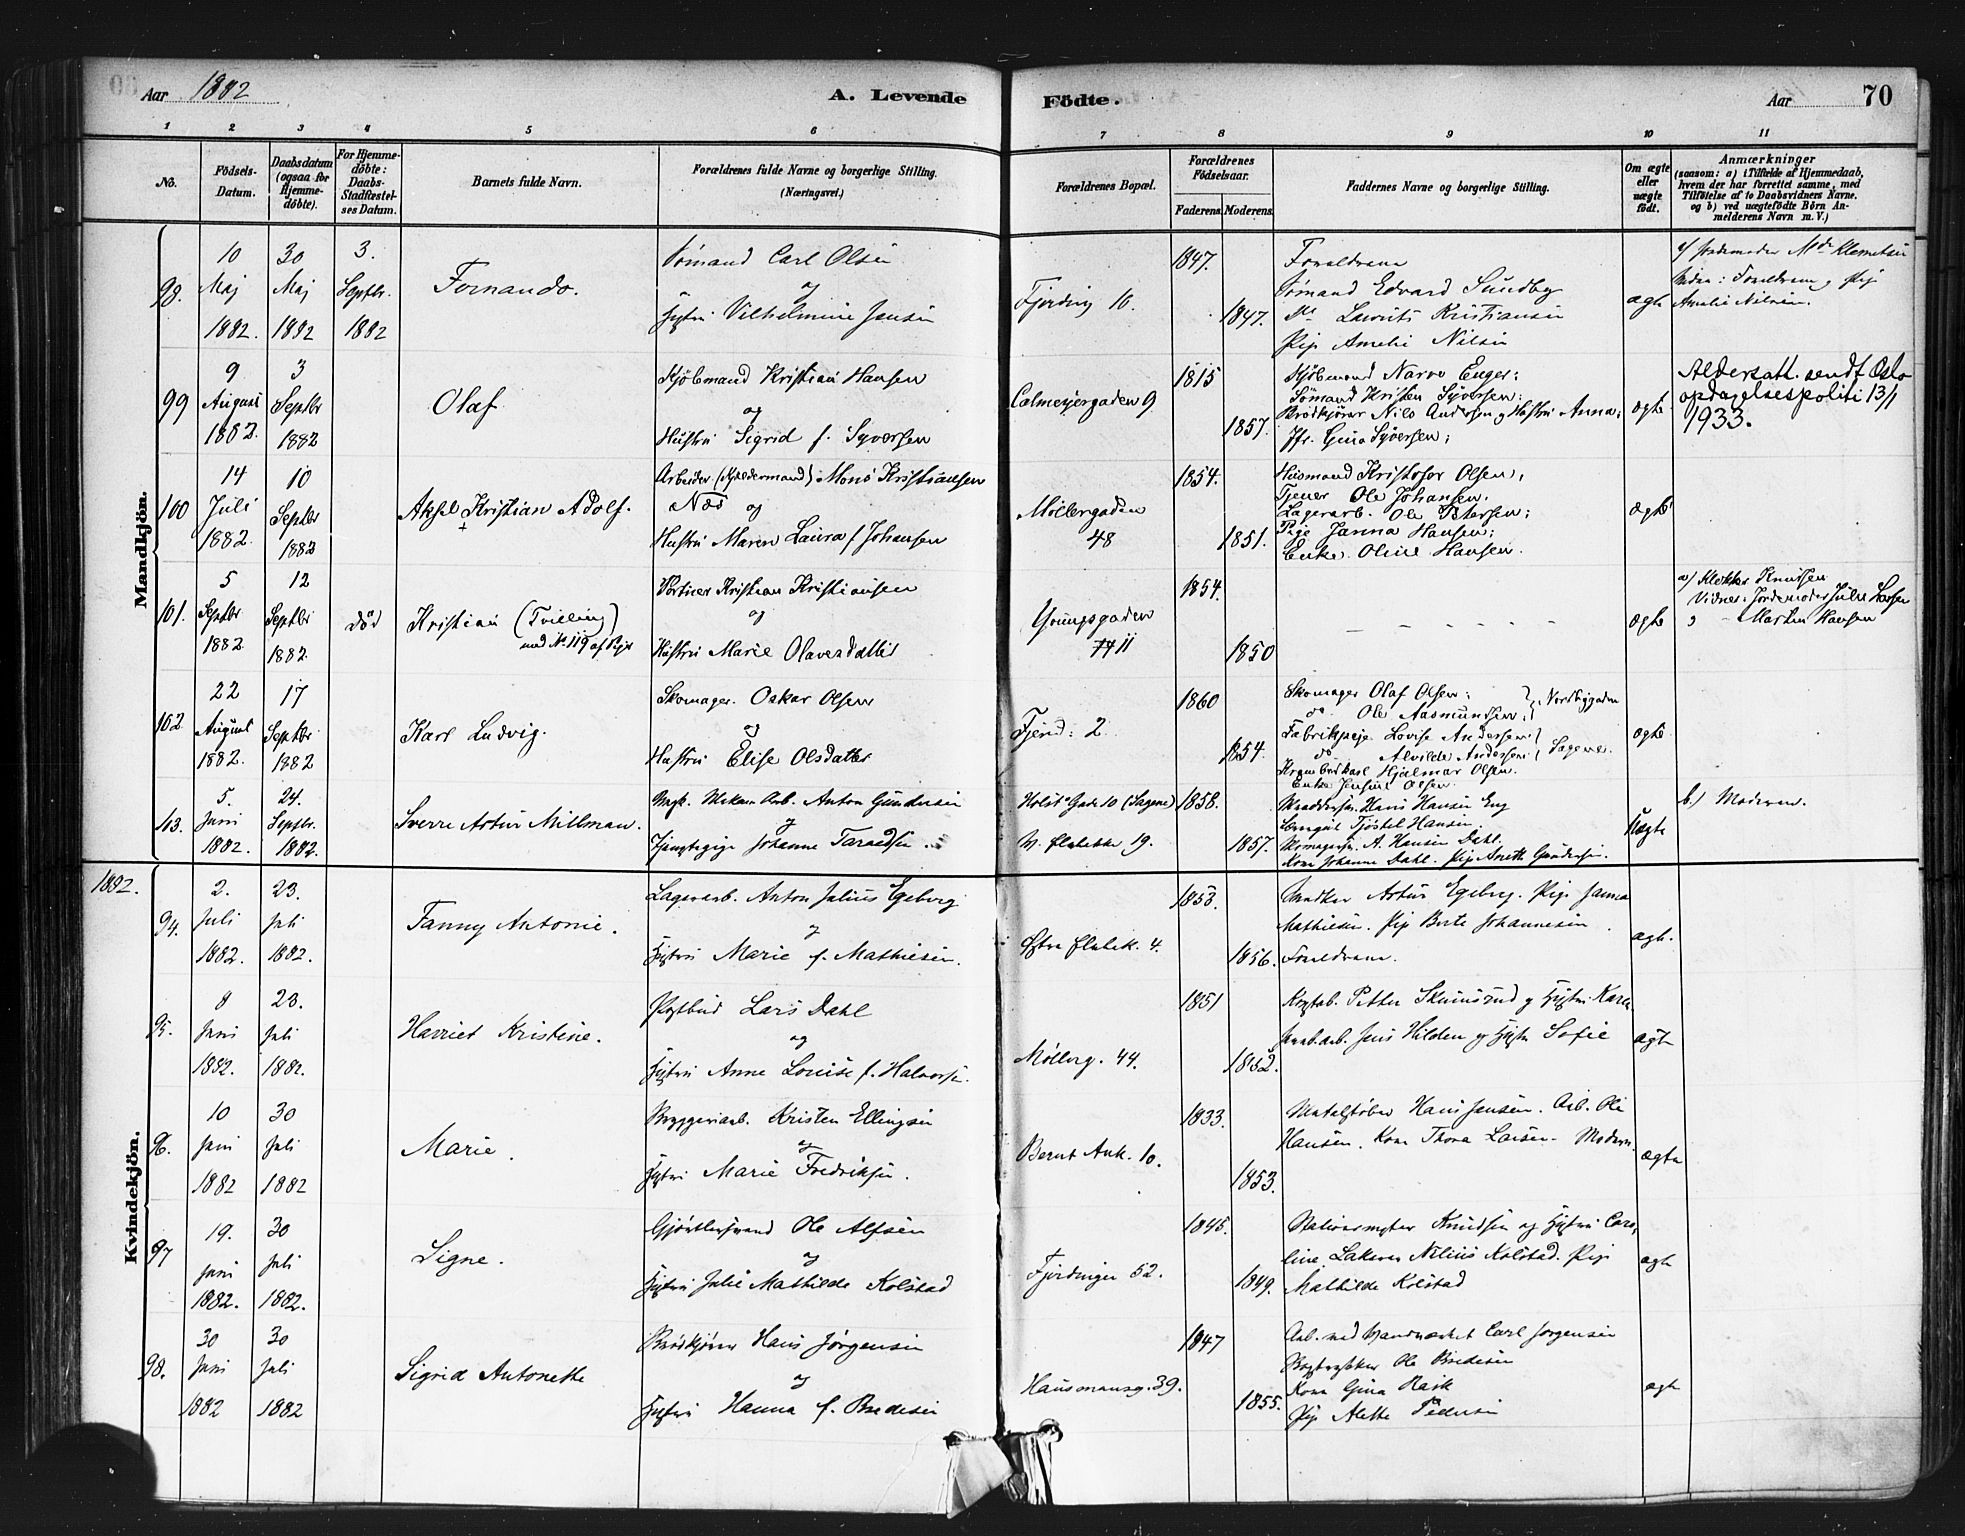 Aar 1882
A. Levende
Födte.
Aar 70
1 2 3 4 5 6 7 8 9 10 11
No.
Födsels-
Datum.
Daabsdatum
(ogsaa for
Hjemme-
döbte).
For Hjemme-
döbte:
Daabs-
Stadfæstel-
ses Datum.
Barnets fulde Navn.
Forældrenes fulde Navne og borgerlige Stilling.
(Næringsvei.)
Forældrenes Bopæl.
Forældrenes
Födselsaar.
Faderens. Moderens.
Faddernes Navne og borgerlige Stilling.
Om ægte
eller
uægte
födt.
Anmærkninger
(saasom: a) i Tilfælde af Hjemmedaab,
hvem der har forrettet samme, med
Tilföielse af to Daabsvidners Navne.
og b) ved uægtefödte Börn An-
melderens Navn m. V.)
Mandkjön.
98.
10
Maj
1882.
30
Maj
1882
3.
Septbr.
1882
Fernando.
Sömand Carl Olsen
og
Hustru Vilhelmine Jensen
Fjerding 10.
1847.
1847.
Forældrene
Sömand Edvard Sundby
Do Laurits Kristiansen
Pige Amelie Nilsen
ægte
a/ Jordemoder Md Klemetsen
Vidne: Forældrene, Pige
Amelie Nilsen.
99
9
August
1882.
3
Septbr
1882
Olaf
Kjöbmand Kristian Hansen
og
Hustru Sigrid f. Syversen
Calmeyergaden 9
1815
1857.
Kjöbmand Narve Enger;
Sömand Kristen Syversen;
Brödkjörer Nils Andersen og Hustru Anna;
Jfr. Gina Syversen;
ægte
Aldersatt. sendt Oslo
opdagelsespoliti 13/1
1933.
100
14
Juli
1882.
10
Septbr
1882
Aksel Kristian Adolf.
+
Arbeider (Kjeldermand) Mons Kristiansen
Næs og
Hustru Maren Laura f Johansen
Möllergaden
48
1854.
1851.
Husmand Kristofer Olsen;
Tjener Ole Johansen.
Lagerarb. Ole Petersen;
Pige Janna Hansen;
Enke Oline Hansen.
ægte
101.
5
Septbr
1882
12
Septbr
1882
död
Kristian (Tvilling)
med No 119 af Piger
Portner Kristian Kristiansen
og
Hustru Marie Olavesdatter
Youngsgaden
11
1854.
1850
ægte
a/ Klokker Knutsen
Vidner: Jordemoder Julie Hansen
Marthin Hansen
102
22
August
1882.
17
Septbr
1882
Karl Ludvig.
Skomager. Oskar Olsen
og
Hustru Elise Olsdatter
Fjerd: 2
1860
1854.
Skomager Olaf Olsen;
do Ole Aasmundsen; Nordbygaden
Fabrikpige Lovise Andersen
do Alvilde Andersen Sagene.
Krambodkarl Hjalmar Olsen.
Enke Jensine Olsen
ægte
103.
5.
Juni
1882.
24.
Septbr.
1882.
Sverre Artur Millman.
Ungk. Mekan. Arb. Anton Gundersen
og
Tjenestepige Johanne Taraldsen
Holst's Gade 10 (Sagene)
V. Elvebakke 19.
1858.
1857.
Hans Hansen Eng
Tjöstel Hansen.
Skomagersv. A. Hansen Dahl.
Kone Johanne Dahl. Pige Anette Gundersen.
Uægte
b.) Moderen.
Kvindekjön.
1882.
94.
2.
Juli
1882.
23.
Juli
1882.
Fanny Antonie.
Lagerarb. Anton Julius Egeberg
og
Hustru Marie f. Mathiesen.
Östre Elvebk. 4.
1853.
1856.
Artur Egeberg. Pige Janna
Mathiesen. Pige Berte Johannesen
Forældrene.
ægte.
95.
8
Juni
1882.
23.
Juli
1882.
Harriet Kristine.
Postbud Lars Dahl
og
Hustru Anne Louise f. Halvorsen.
Möllerg. 44.
1851
1852.
Petter Skuinsrud og Hustru Karen.
Jens Hilden og Hustru Sofie
ægte
96.
10
Juni
1882
30
Juli
1882
Marie.
Bryggeriarb. Kristen Ellingsen
og
Hustru Marie Fredriksen.
Bernt Ank. 10.
1833.
1853.
Metalstöber Hans Jensen. Arb. Ole
Hansen. Kone Thora Larsen. Moderen.
ægte
97
19.
Juni
1882.
30
Juli
1882.
Signe.
Gjörtlersvend Ole Alfsen
og
Hustru Julie Mathilde Kolstad
Fjerdingen 52.
1845.
1849.
Stationsmester Knudsen og Hustru Caro-
line. Lakerer Nilius Kolstad. Pige
Mathilde Kolstad
ægte
98.
30
Juni
1882
30
Juli
1882
Sigrid Antonette
Brödkjörer Hans Jörgensen
og
Hustru Hanna f. Bredesen
Hausmansg. 39.
1847
1855.
Arb. ved Vandværket Carl Jörgensen
Bogtrykker Ole Bredesen
Kone Gina Rask
Pige Alette Pedersen
ægte